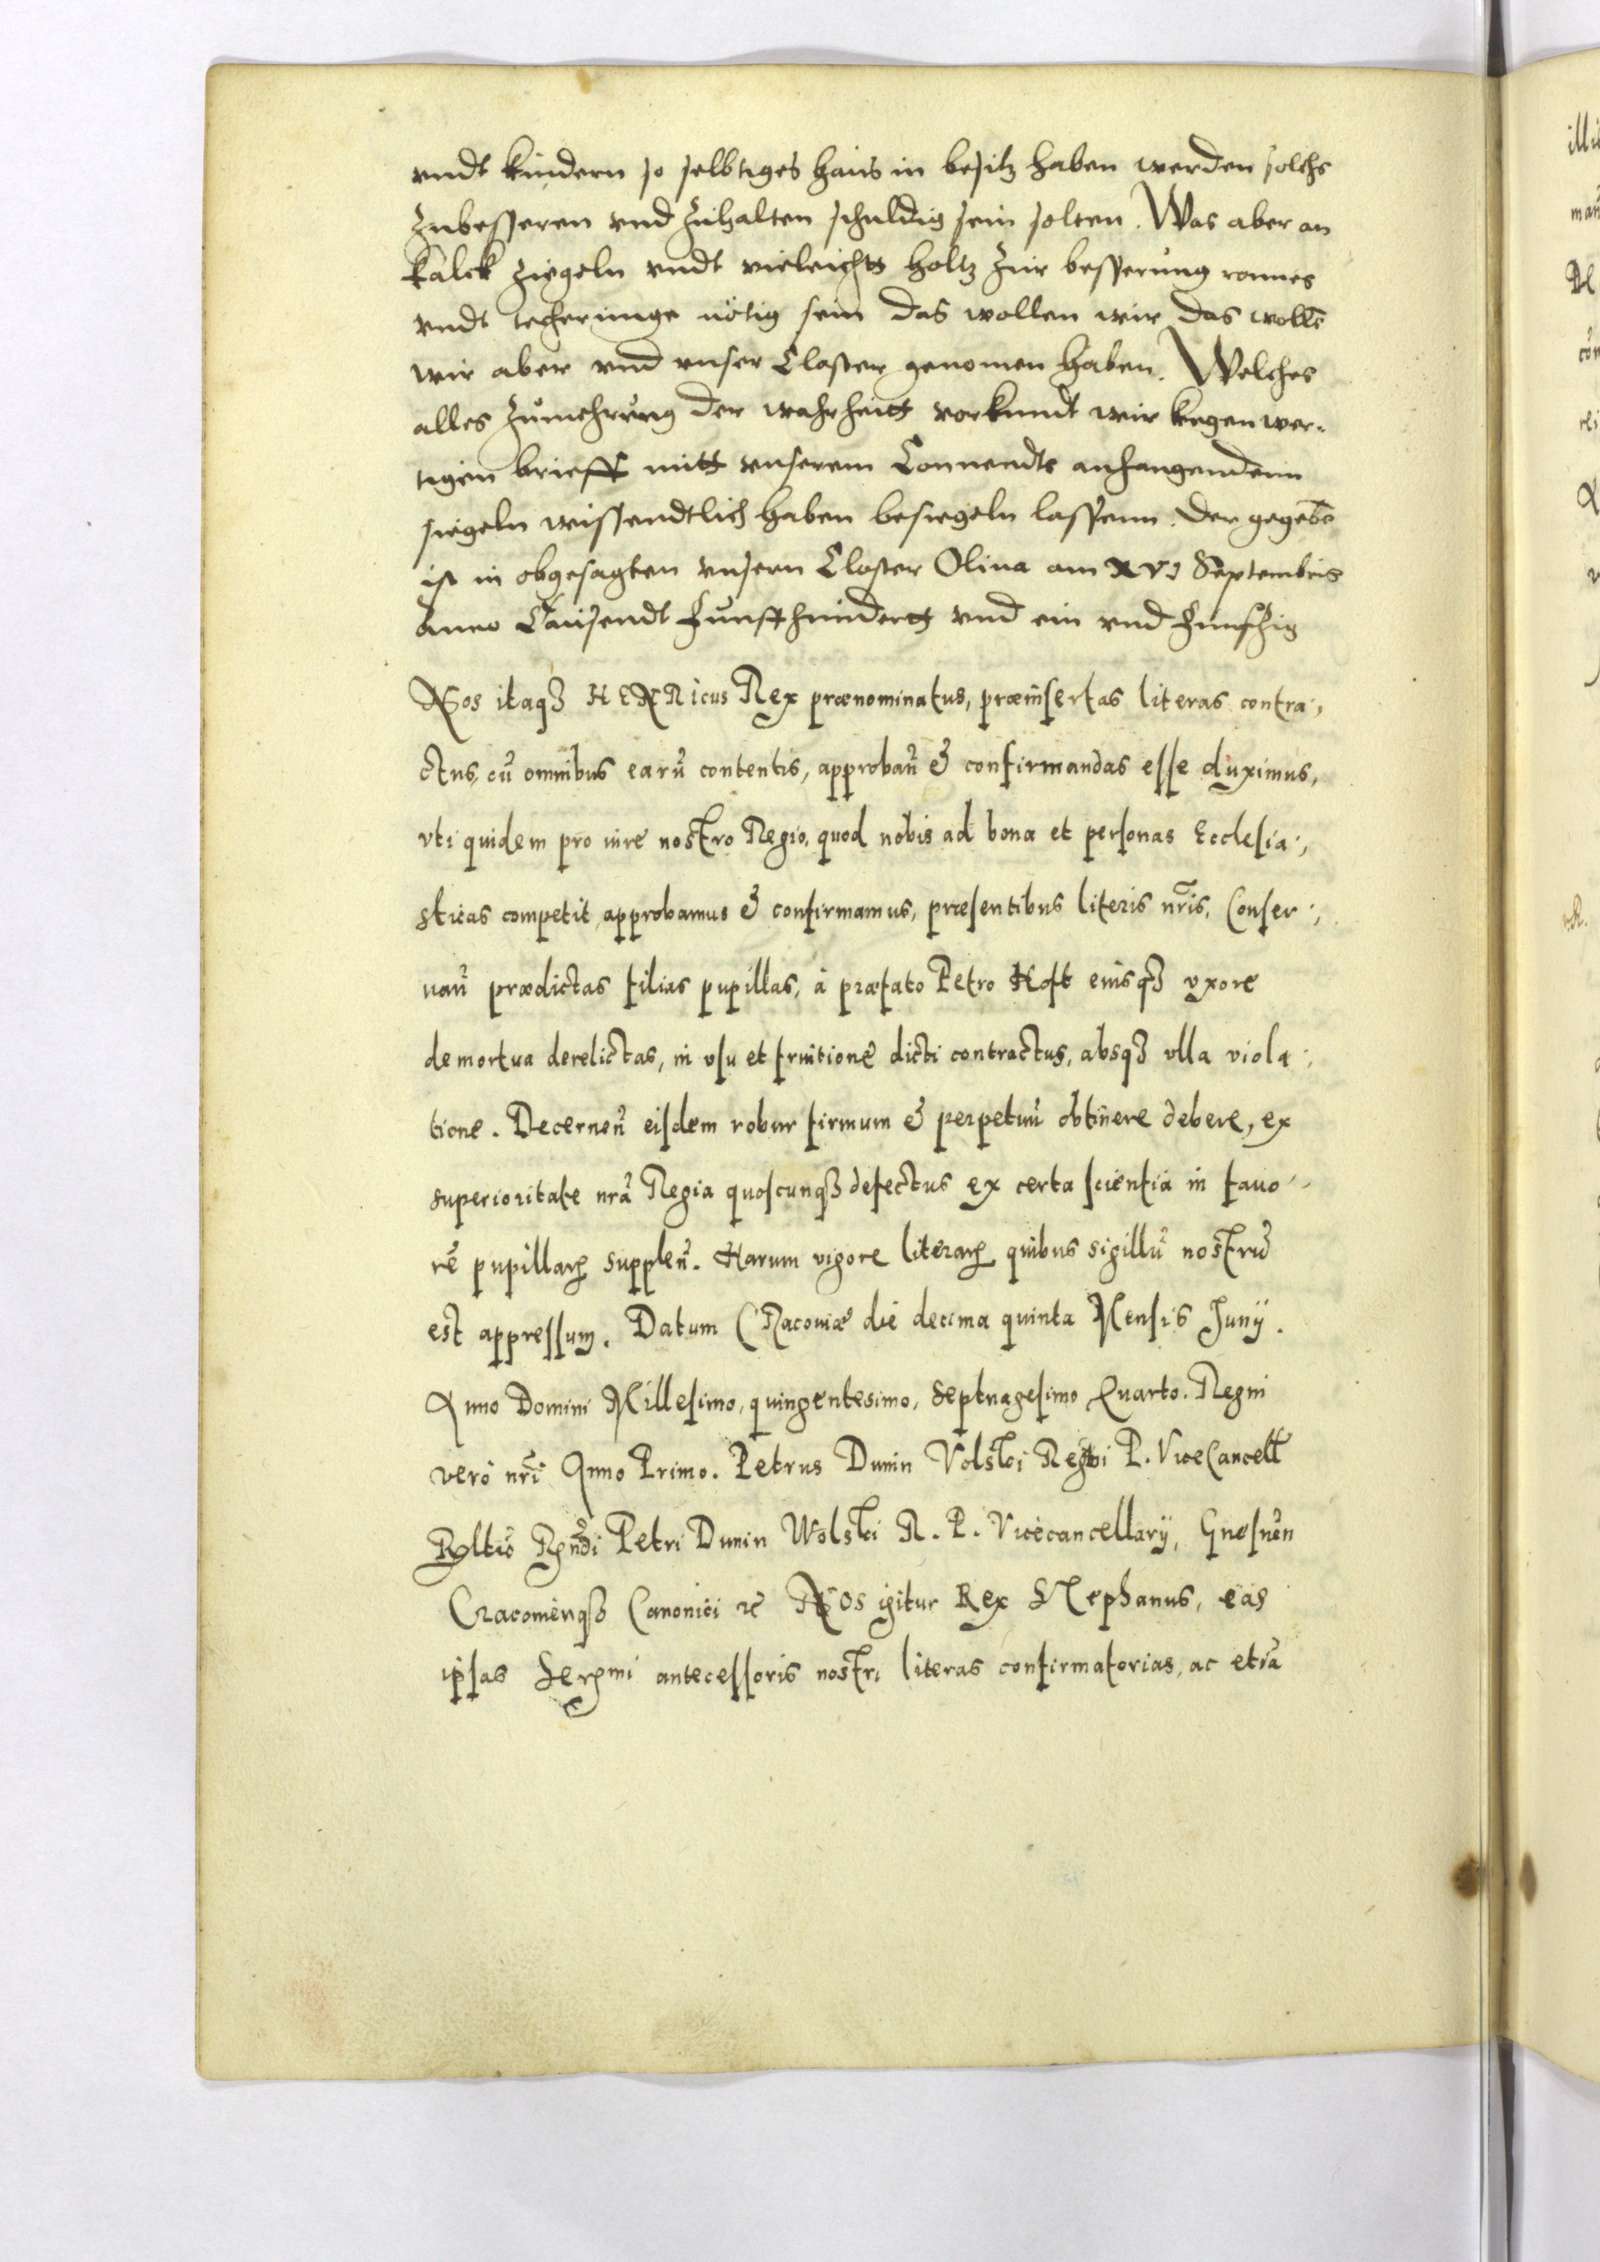 vndt kindern so selbtiges haus in besitz haben werden solchs
zubesseren vnd zuhalten schuldig sein solten. Was aber an
kalck ziegeln vndt vieleichtt holtz zur besserung ronnes
vndt techeringe nötig sein das wollen wir das wollē
wir aber vnd vnser Closter genomen haben. Welches
alles zumehrung der wahrheitt vorkundt wir kegenwer-
tigen brieff mitt vnserem Conuendts anhangendenn
siegeln wissendtlich haben besiegeln lassenn. Der gegebē
ist in obgesagten vnsern Closter Oliua am XVI Septembris
Anno Tausendt Funffhundertt vnd ein vnd Funfzig
Nos itaqꝫ HENRicus Rex prænominatus, præinsertas literas contra-
ctus, cū omnibus earū contentis, approbañ & confirmandas esse duximus,
vti quidem pro iure nostro Regio, quod nobis ad bona et personas Ecclesia-
sticas competit, approbamus & confirmamus, præsentibus literis nr̄is, Conser-
uañ prædictas filias pupillas, à præfato Petro Hoft eiusqꝫ vxore
demortua derelictas, in vsu et fruitione dicti contractus, absqꝫ vlla viola-
tione. Decerneñ eisdem robur firmum & perpetuū obtinere debere, ex
superioritate nrā Regia quoscunqꝫ defectus ex certa scientia in fauo-
rē pupillarꝫ suppleñ. Harum vigore literarꝫ quibus sigillū nostrū
est appressum. Datum CRacouiæ die decima quinta Mensis Junij.
Anno Domini Millesimo, quingentesimo, Septuagesimo Quarto. Regni
verò nr̄i Anno Primo. Petrus Dunin Volski Regni P. ViceCancell
Rltio Rn̄di Petri Dunin Wolski R. P. Vicecancellarij, Gnesnen
Cracouienqꝫ Canonici ꝛc NOS igitur Rex STephanus, eas
ipsas Serꝫmi antecessoris nostri literas confirmatorias, ac etiā